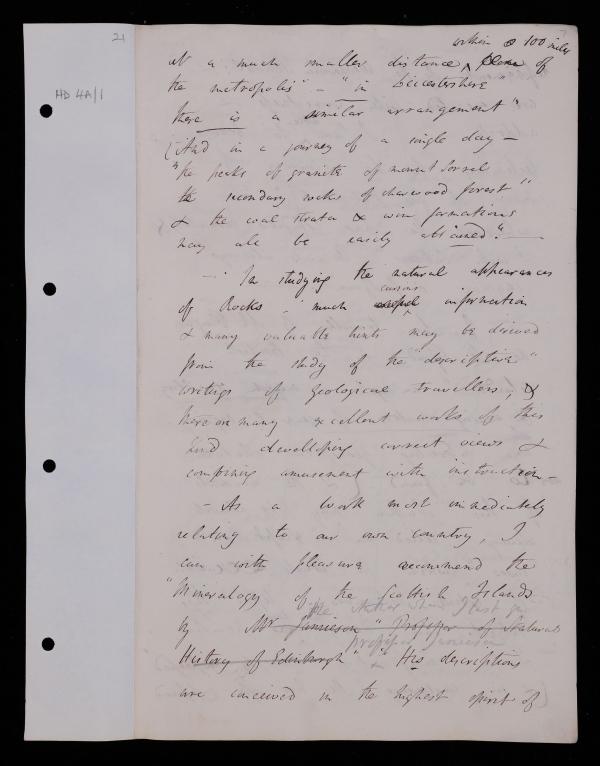 21
HD 4A/1
within 100 miles
at a much smaller distance of
the metropolis" - "in Leicestershire"
there is a similar arrangement"
And in a journey of a single day -
"the peaks of granite of mount Sorrel
the secondary rocks of charwood forest"
& the coal strata & iron formations
may all be easily
- In studying the natural appearances
curious
of Rocks - much useful information
& many valuable hints may be derived
from the study of the "descriptive"
writings of Geological travellers, &
there are many excellent works of this
kind developing correct views &
combining amusement with instruction -
- As a work most immediately
relating to our own country, I
can with pleasure recommend the
"Mineralogy of the Scottish Islands
the Author
by Mr Jamieson "Professor of Natural
professor Jamieson
History of Edinburgh" - "His descriptions
are conceived in the highest spirit of